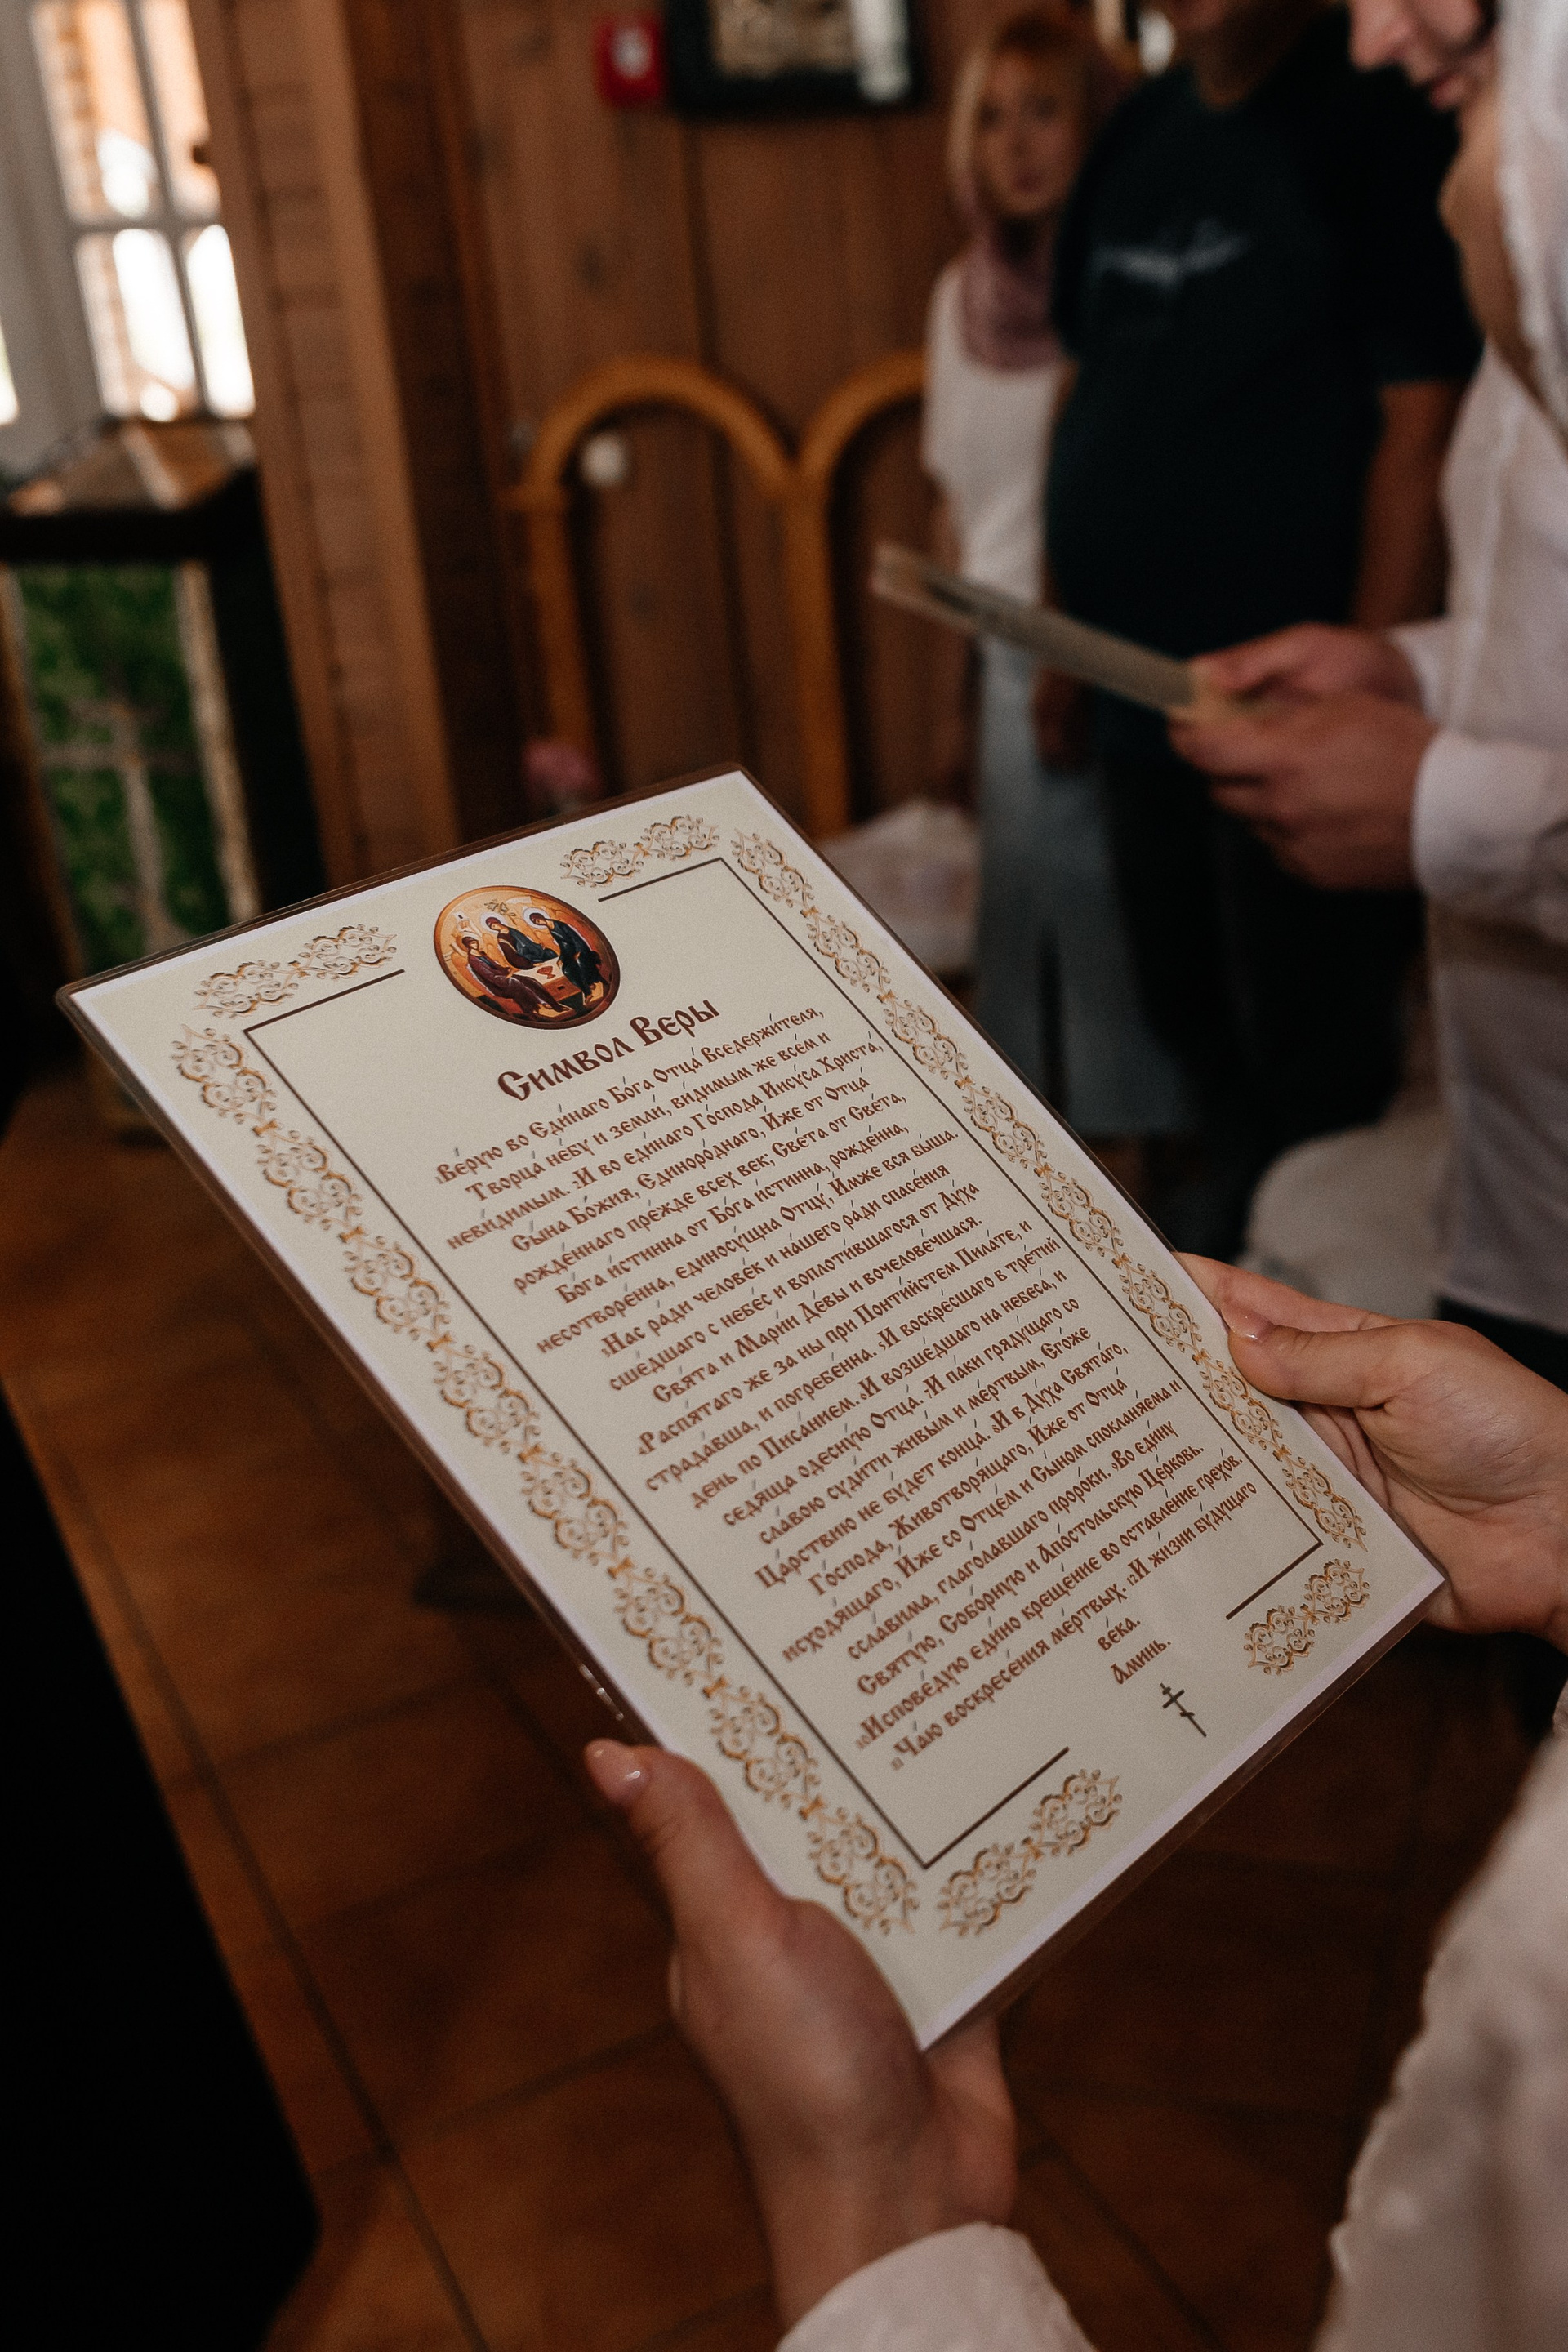 Символ Веры
1Ве́рую во Еди́наго Бо́га Отца́ Вседержи́теля,
Творца́ не́бу и земли́, ви́димым же всем и
неви́димым. 2И во еди́наго Го́спода Иису́са Христа́,
Сы́на Бо́жия, Единоро́днаго, И́же от Отца́
рожде́ннаго пре́жде всех век; Све́та от Све́та,
Бо́га и́стинна от Бо́га и́стинна, рожде́нна,
несотворе́нна, единосу́щна Отцу́, И́мже вся бы́ша.
3Нас ра́ди челове́к и на́шего ра́ди спасе́ния
сше́дшаго с небе́с и воплоти́вшагося от Ду́ха
Свя́та и Мари́и Де́вы и вочелове́чшася.
4Распя́таго же за ны при Понти́йстем Пила́те, и
страда́вша, и погребе́нна. 5И воскре́сшаго в тре́тий
день по Писа́нием. 6И возше́дшаго на небеса́, и
седя́ща одесну́ю Отца́. 7И па́ки гряду́щаго со
сла́вою суди́ти живы́м и ме́ртвым, Его́же
Ца́рствию не бу́дет конца́. 8И в Ду́ха Свята́го,
Го́спода, Животворя́щаго, И́же от Отца́
исходя́щаго, И́же со Отце́м и Сы́ном спокланя́ема и
ссла́вима, глаго́лавшаго проро́ки. 9Во еди́ну
Святу́ю, Собо́рную и Апо́стольскую Це́рковь.
10Испове́дую еди́но креще́ние во оставле́ние грехо́в.
11Ча́ю воскресе́ния ме́ртвых. 12И жи́зни бу́дущаго
ве́ка.
Ами́нь.